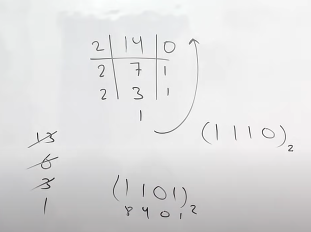 2 14 0
2 7 1
2 3 1
1
(1110)2
13
6
3
1
(1101)2
8 4 0 1